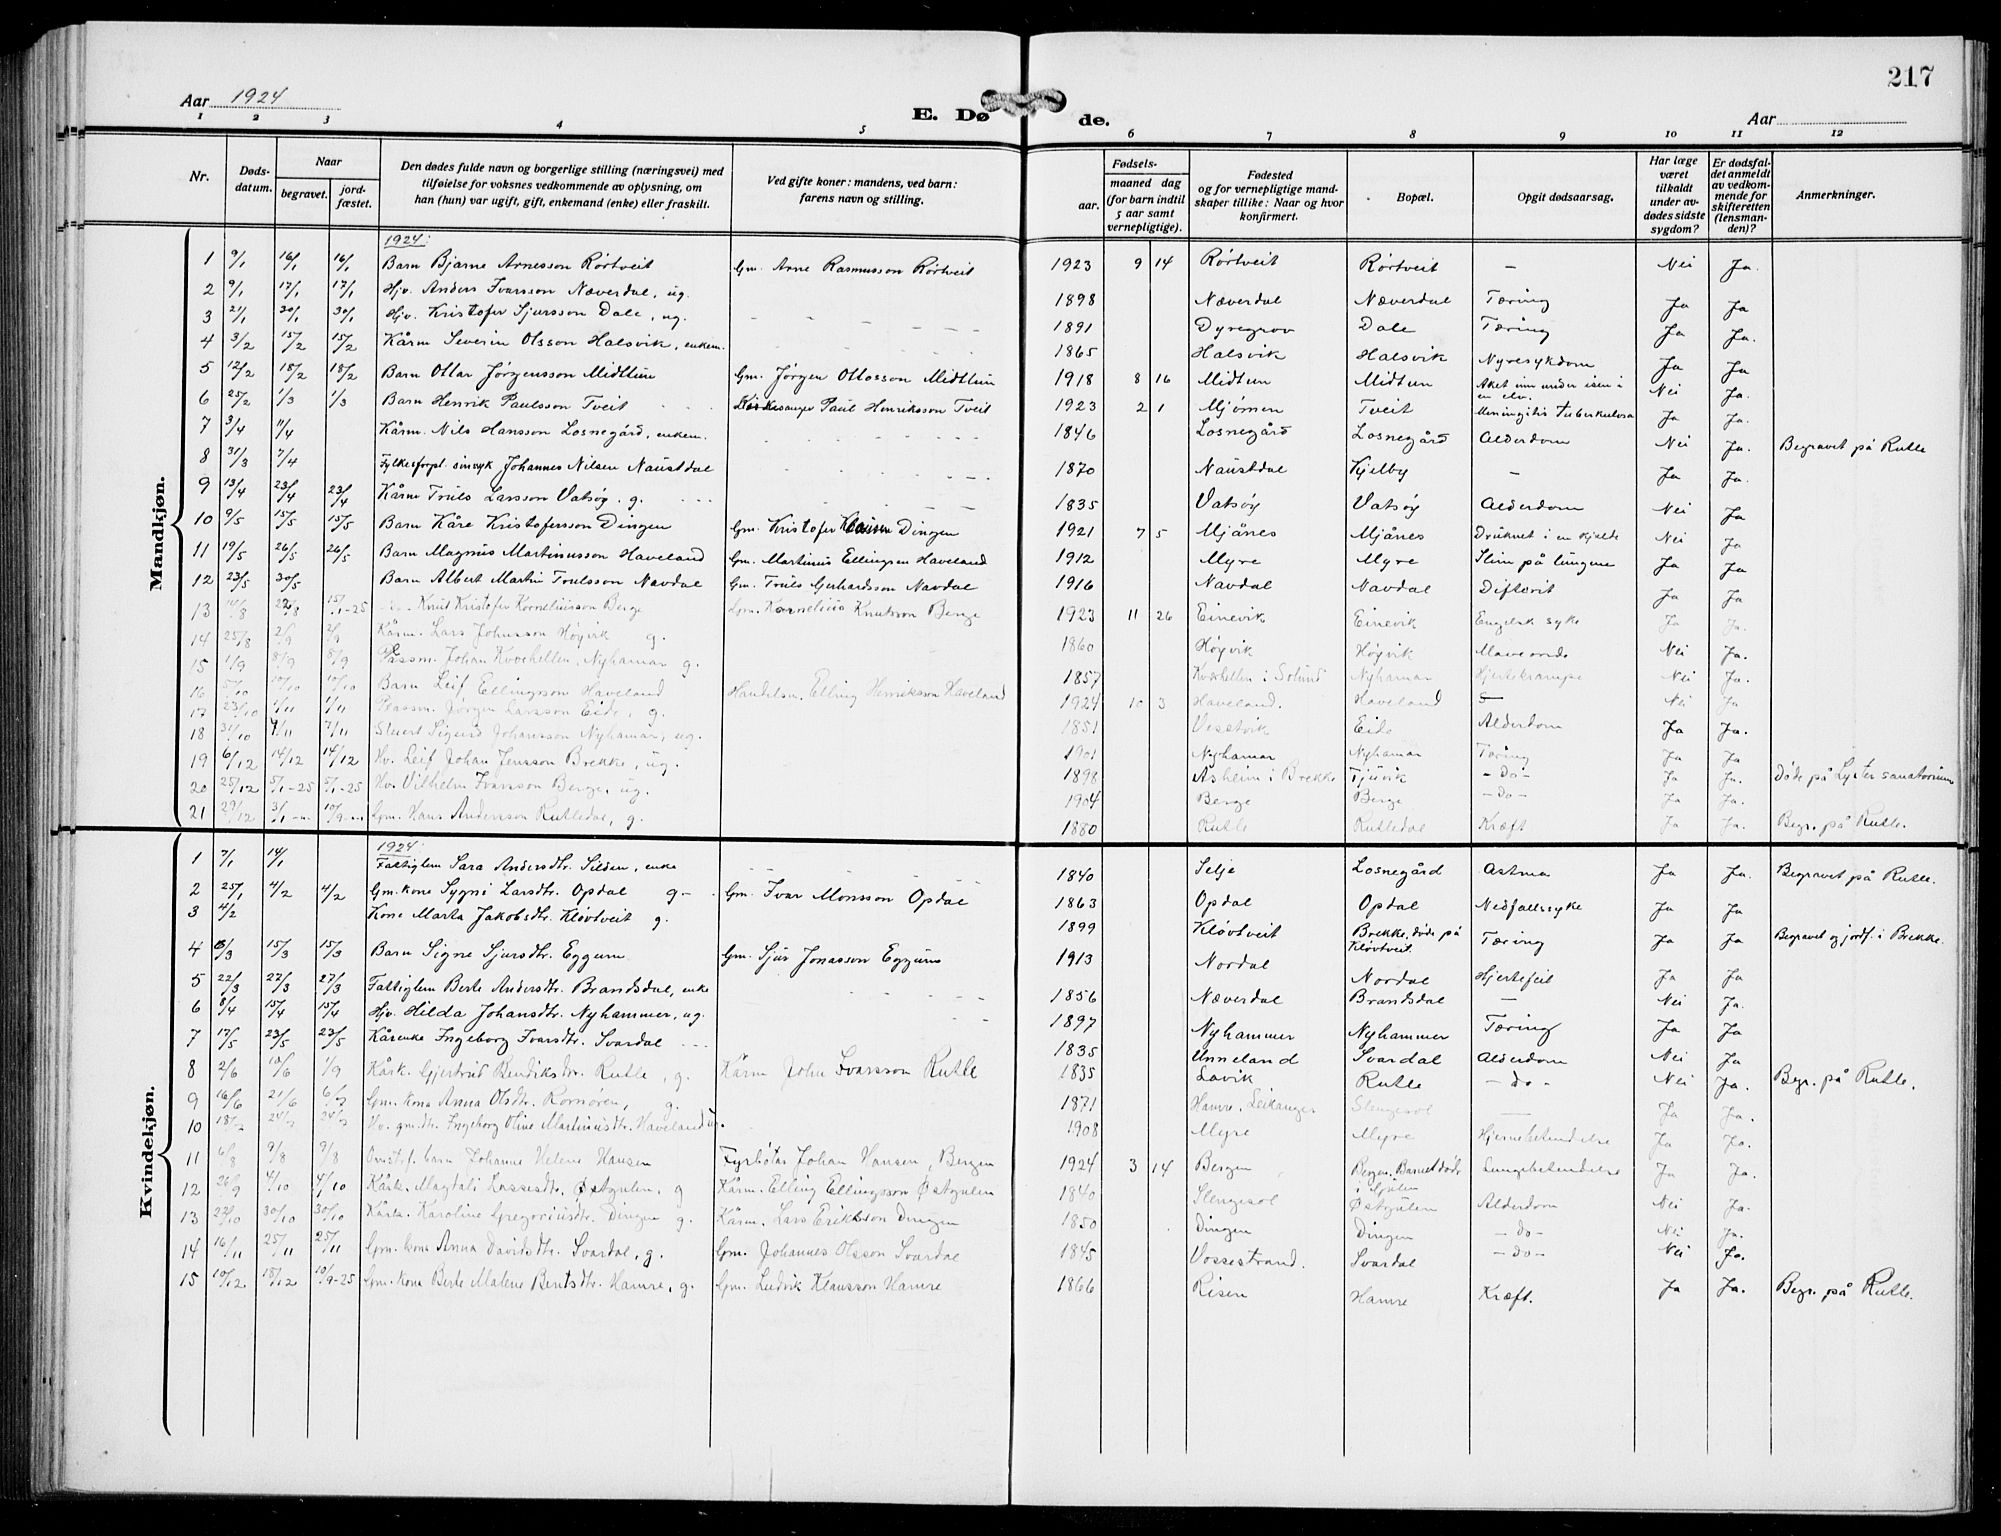 217
Aar 1924
E. Døde.
Aar
1 2 3 4 5 6 7 8 9 10 11 12
Nr.
Døds-datum.
Naar
begravet.
jord-fæstet.
Den dødes fulde navn og borgerlige stilling (næringsvei) med tilføielse for voksnes vedkommende av oplysning, om han (hun) var ugift, gift, enkemand (enke) eller fraskilt.
Ved gifte koner: mandens, ved barn: farens navn og stilling.
Fødsels-
aar.
maaned dag (for barn indtil 5 aar samt vernepligtige).
Fødested og for vernepligtige mandskaper tillike: Naar og hvor konfirmert.
Bopæl.
Opgit dødsaarsag.
Har læge været tilkaldt under avdødes sidste sygdom?
Er dødsfaldet anmeldt av vedkommende for skifteretten (lensmanden)?
Anmerkninger.
Mandkjøn.
1924:
1 9/1 16/1 16/1 Barn Bjarne Arnesson Rørtveit Gm. Arne Rasmusson Rørtveit 1923 9 14 Rørtveit Rørtveit — Nei Ja.
2 9/1 17/1 17/1 Hjv. Anders Ivarsson Næverdal, ug. 1898 Næverdal Næverdal Tæring Ja Ja
3 21/1 30/1 30/1 Hjv. Kristofer Sjursson Dale, ug. 1891 Dyregrov Dale Tæring Ja Ja.
4 3/2 15/2 15/2 Kårm Severin Olsson Halsvik, enkem. 1865 Halsvik Halsvik Nyresykdom Ja Ja
5 12/2 18/2 18/2 Barn Ottar Jørgensson Midttun Gm. Jørgen Ottosson Midttun 1918 8 16 Midtun Midtun Aket inn under isen i en elv. Nei Ja.
6 25/2 1/3 1/3 Barn Henrik Paulsson Tveit Kirkesanger Paul Henriksson Tveit 1923 2 1 Mjømen Tveit Meningitis tuberkulosa Ja Ja.
7 3/4 11/4 Kårm. Nils Hansson Losnegård, enkem. 1846 Losnegård Losnegård Alderdom Nei Ja. Begravet på Rutle
8 31/3 7/4 Fylkesforpl. sinsyk Johannes Nilsen Naustdal 1870 Naustdal Kjelby — Ja Ja.
9 13/4 23/4 23/4 Kårm Truls Larsson Vatsøy. g. 1835 Vatsøy Vatsøy Alderdom Nei Ja
10 9/5 15/5 15/5 Barn Kåre Kristofersson Dingen Gm. Kristofer Klausen Dingen 1921 7 5 Mjånes Mjånes Druknet i en kjelde Nei Ja
11 19/5 26/5 26/5 Barn Magnus Martinusson Haveland Gm. Martinus Ellingsen Haveland 1912 Myre Myre Slim på lungene Ja Ja
12 23/5 30/5 Barn Albert Martin Trulsson Navdal Gm. Truls Gerhardsson Navdal 1916 Navdal Navdal Difterit Ja Ja
13 14/8 22/8 15/1-25 — Knut Kristofer Korneliusson Berge Gm. Kornelius Knutsson Berge 1923 11 26 Einevik Einevik Engelsk syke Ja Ja.
14 25/8 2/9 2/9 Kårm. Lars Johnsson Høyvik g. 1860 Høyvik Høyvik Maveonde Nei Ja.
15 1/9 8/9 8/9 Plassm. Johan Kvechellen, Nyhamar g. 1857 Kvechellen i Solund Nyhamar Hjertekrampe Nei Ja.
16 5/10 10/10 10/10 Barn Leif Ellingsson Haveland Handelsm. Elling Henriksson Haveland 1924 10 3 Haveland. Haveland — Nei Ja
17 23/10 1/11 1/11 Plassm. Jørgen Larsson Eide, g. 1851 Vesetvik Eide Alderdom Ja Ja.
18 31/10 7/11 7/11 Stuert Sigurd Johansson Nyhamar, ug. 1901 Nyhamar Nyhamar Tæring Ja Ja
19 6/12 14/12 14/12 Hv. Leif Johan Jensson Brekke, ug. 1898 Asheim i Brekke Tjuvik — do — Ja Ja. Døde på Lyster sanatorium
20 25/12 5/1-25 5/1-25 Hv. Vilhelm Ivarsson Berge, ug. 1904 Berge Berge — do — Ja Ja
21 29/12 3/1 10/9 Gm. Hans Andersson Rutledal, g. 1880 Rutle Rutledal Kræft Ja Ja. Begr. på Rutle.
Kvindekjøn.
1924:
1 7/1 14/1 Fattiglem Sara Andersdtr. Silden, enke 1840 Selje Losnegård Astma Ja Ja. Begravet på Rutle.
2 25/1 4/2 4/2 Gm.kone Sygni Larsdtr. Opdal g— Gm. Ivar Monsson Opdal 1863 Opdal Opdal Nedfallssyke Ja Ja
3 4/2 Kone Marta Jakobsdtr. Kløvtveit g. 1899 Kløvtveit Brekke, døde på Kløvtveit Tæring Ja Ja Begravet og jordf. i Brekke.
4 5/3 15/3 15/3 Barn Signe Sjursdtr. Eggum Gm. Sjur Jonasson Eggum 1913 Nordal Nordal Hjertefeil Ja Ja
5 22/3 27/3 27/3 Fattiglem Berte Andersdtr. Brandsdal, enke 1856 Næverdal Brandsdal — Nei Ja.
6 8/4 15/4 15/4 Hjv. Hilda Johansdtr. Nyhammer, ug. 1897 Nyhammer Nyhammer Tæring Ja Ja
7 17/5 23/5 23/5 Kårenke Ingeborg Ivarsdtr. Svardal 1835 Unneland Svardal Alderdom Nei Ja
8 2/6 10/6 1/9 Kårk. Gjertrud Bendiksdtr. Rutle, g. Kårm John Ivarsson Rutle 1835 Lavik Rutle — do — Nei Ja. Begr. på Rutle.
9 16/6 21/6 Gm. kona Anna Olsdtr. Kornøren, g. 1871 Hamre, Leikanger Slengesol — Ja Ja.
10 18/7 24/7 24/7 Hv. gm.dtr. Ingeborg Oline Martinusdtr. Haveland ug. 1908 Myre Myre Hjernebetendelse Ja Ja.
11 6/8 9/8 9/8 Omstr. barn Johanne Helene Hansen Fyrbøtar Johan Hansen, Bergen 1924 3 14 Bergen Bergen, Barnet døde i Gjulen Lungebetendelse Ja Ja.
12 26/9 4/10 4/10 Kårk. Magdali Lassesdtr. Østgulen, g Kårm. Elling Ellingsson Østgulen 1840 Slengesol Østgulen Alderdom Nei Ja.
13 22/10 30/10 30/10 Kårk. Karoline Gregoriusdtr. Dingen g. Kårm. Lars Eriksson Dingen 1850 Dingen Dingen — do — Nei Ja.
14 16/11 25/11 25/11 Gm. kona Anna Davidsdtr. Svardal, g. Gm. Johannes Olsson Svardal 1845 Vossestrand. Svardal — do — Nei Ja.
15 10/12 18/12 10/9-25 Gm. kona Berte Malene Berntsdtr. Hamre, g. Gm. Ludvik Klausson Hamre 1866 Risen Hamre Kræft. Ja Ja. Begr. på Rutle.